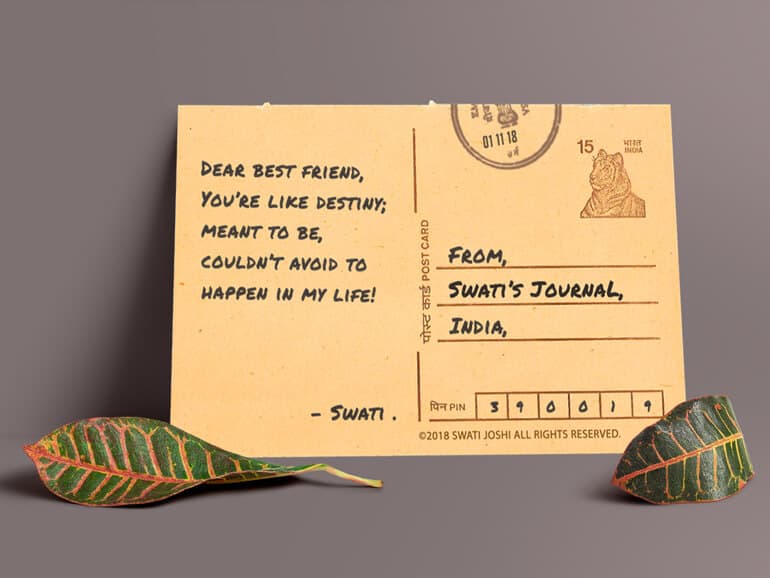 DEAR BEST FRIEND,
YOU'RE LIKE DESTINY;
MEANT TO BE,
COULDN'T AVOID TO
HAPPEN IN MY LIFE!
- SWATI .
पोस्ट कार्ड POST CARD
01 11 18
15
भारत
INDIA
FROM,
SWATI'S JOURNAL,
INDIA,
पिन PIN 3 9 0 0 1 9
©2018 SWATI JOSHI ALL RIGHTS RESERVED.